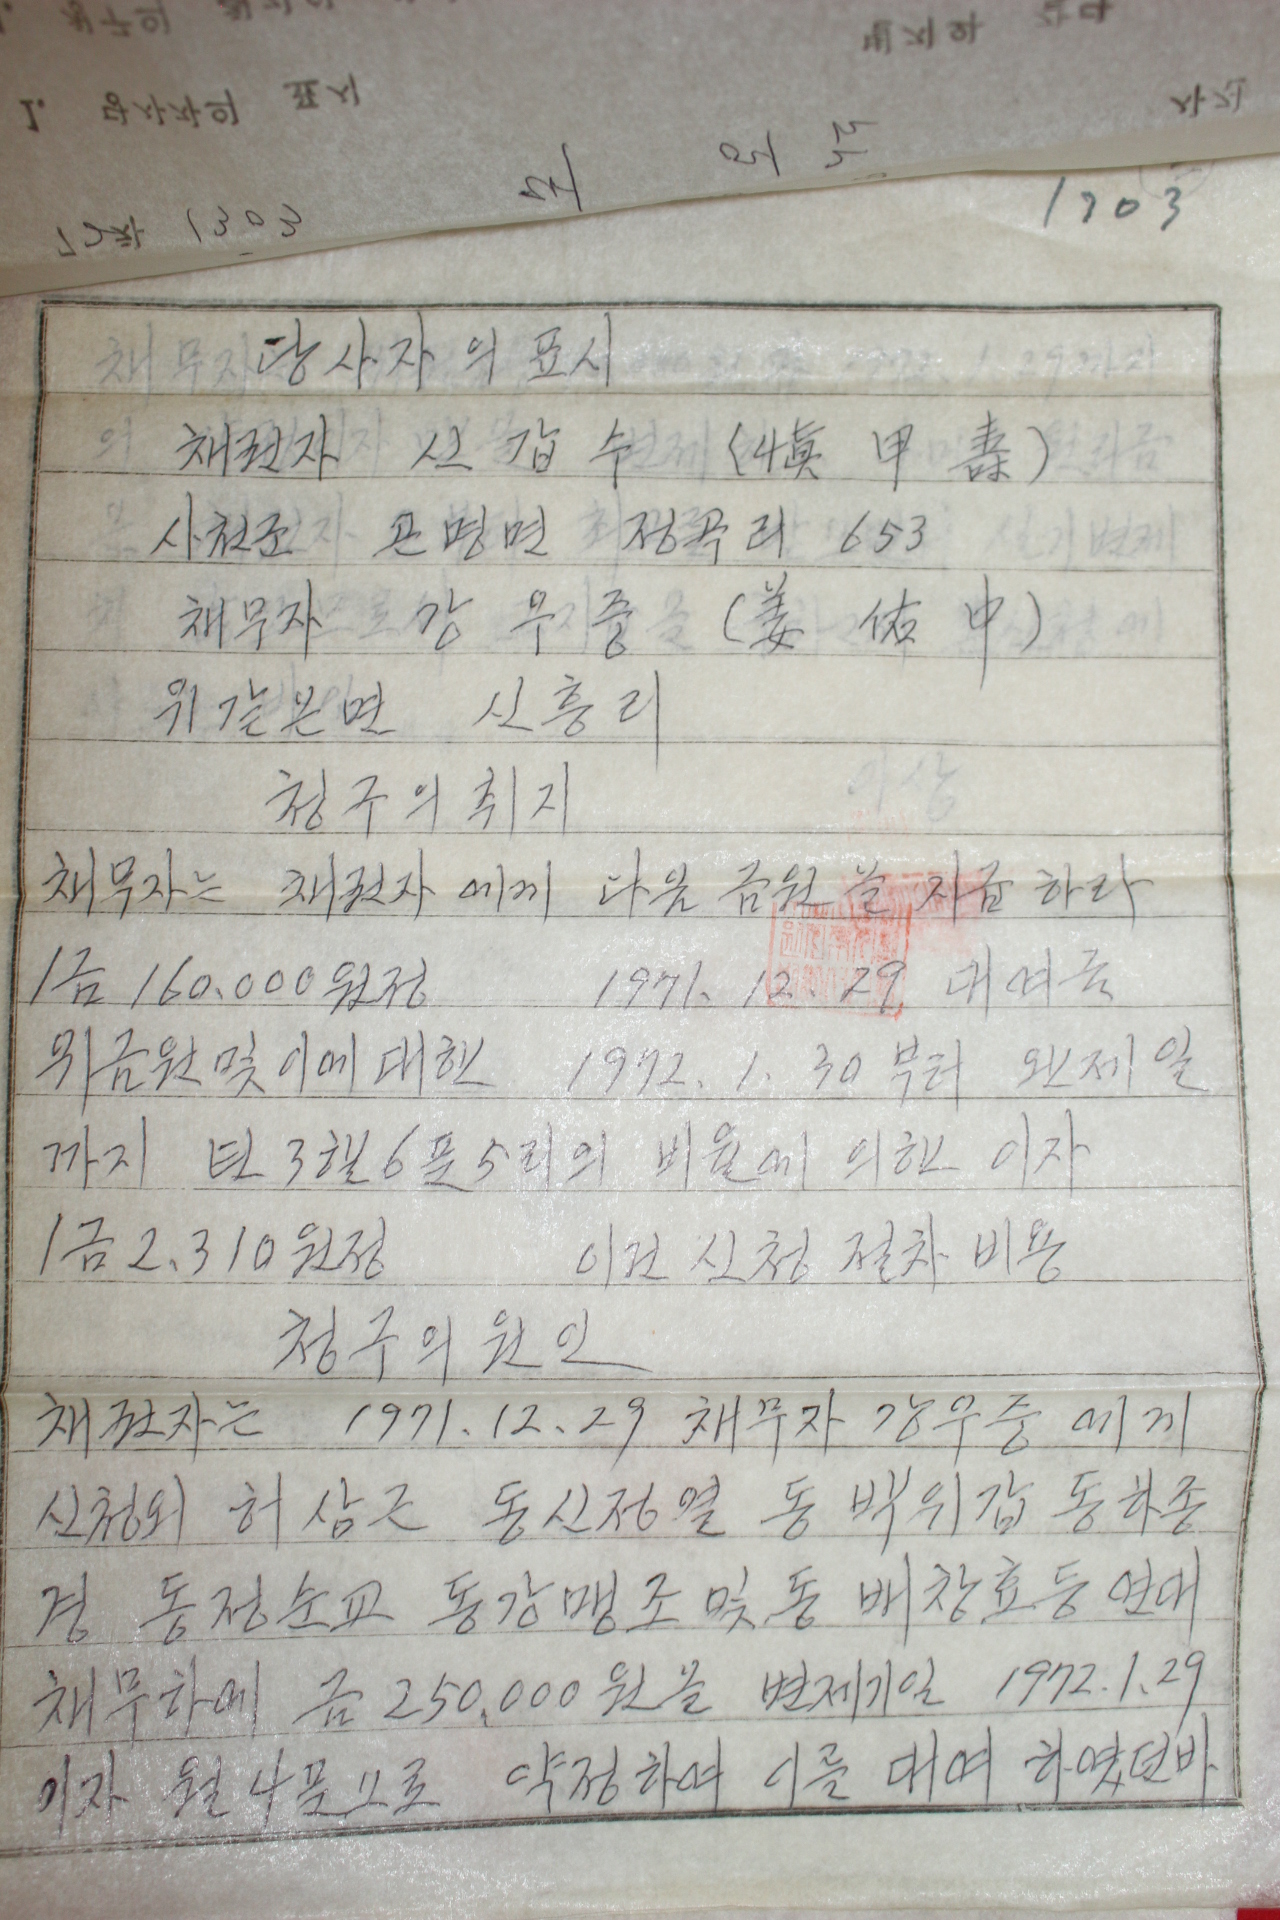 1303
당사자의 표시
채권자 신갑수 (愼甲壽)
사천군 곤명면 정곡리 653
채무자 강우중 (姜佑中)
위같은면 신흥리
청구의취지
채무자는 채권자에게 다음 금원을 지급하라
1금 160,000원정 1971. 12. 29 대여금
위금원및이에대한 1972. 1. 30부터 완제일
까지 년3할6푼5리의 비율에 의한 이자
1금2,310원정 이건 신청 절차 비용
청구의원인
채권자는 1971. 12. 29 채무자 강우중에게
신청외 허삼근 동신정열 동 박위갑 동하종
경 동정순교 동강맹조및동 배창효등연대
채무하에 금250,000원을 변제기일 1972. 1. 29
이자 월4푼으로 약정하여 이를 대여 하였던바